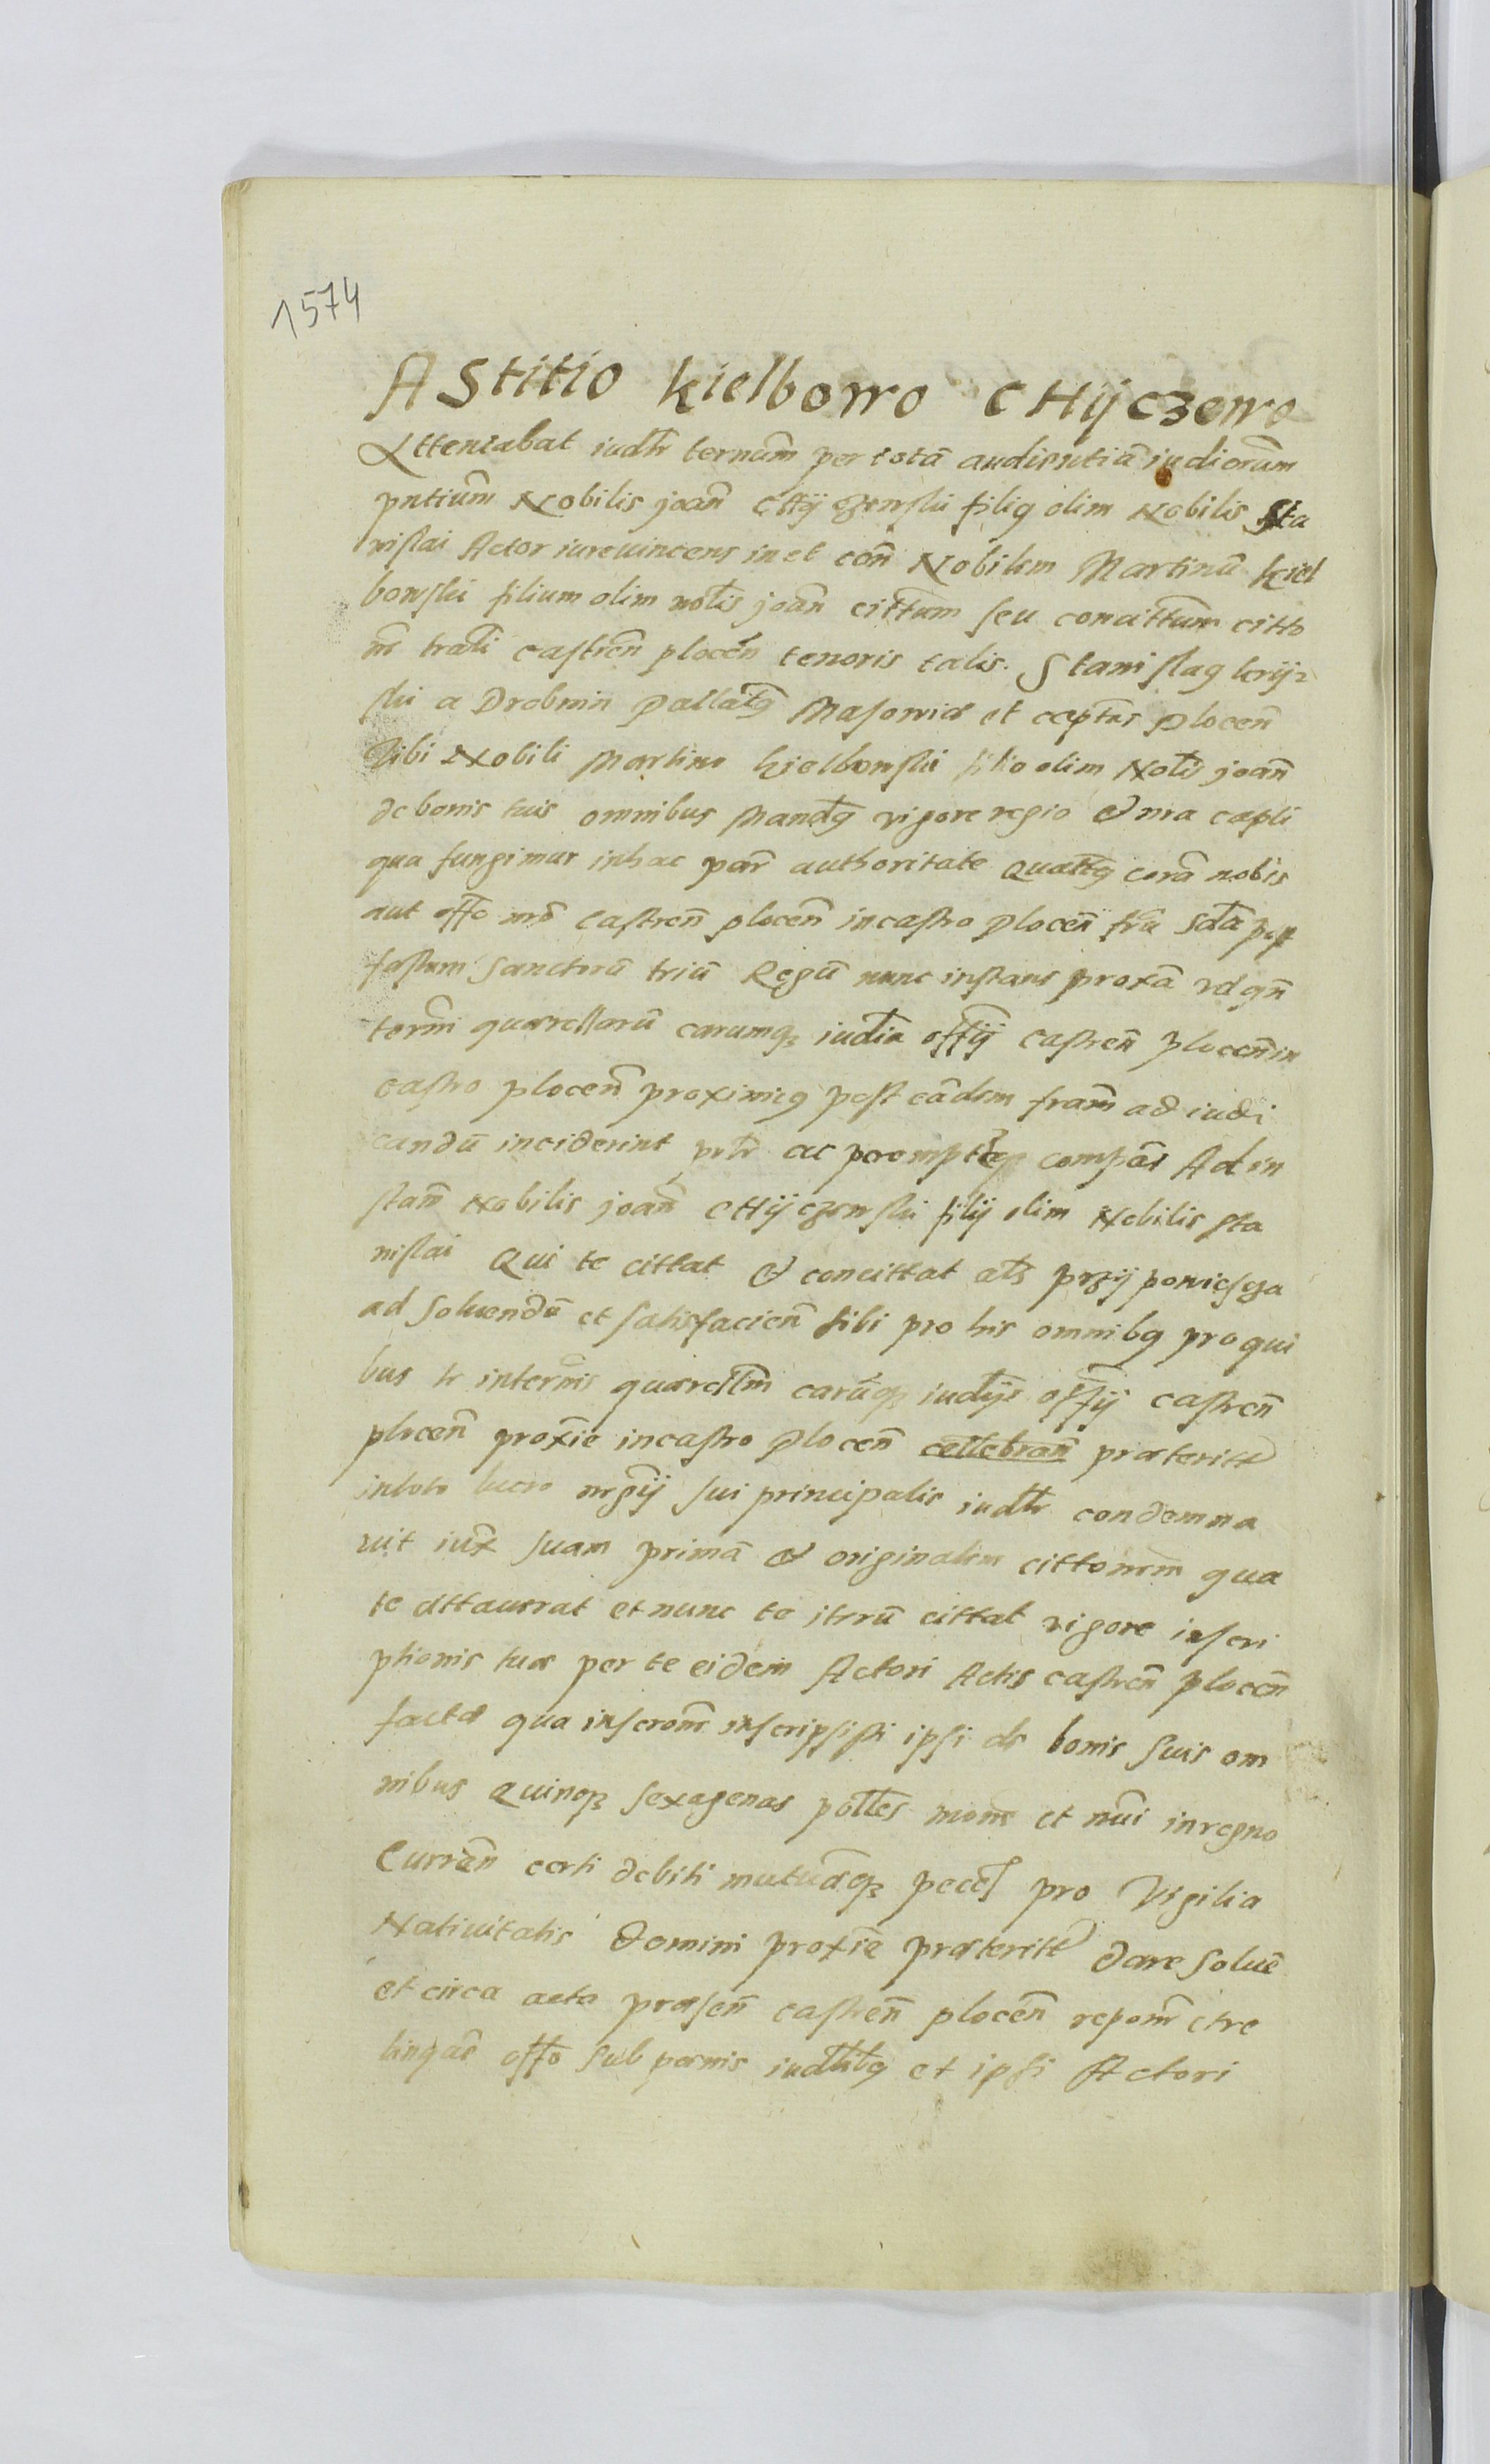 1574
AStitio kielbowo CHÿczewo
Attentabat iudtr ternum̄ per totā audientiā iudiorum̄
pntium̄ Nobilis joan̄ CHÿczewski filiq olim Nobilis Sta
nislai Actor iurevincens in et con̄ Nobilem Martinū kiel
bowski filium olim notis joan̄ cittum seu concittum citto
m̄ trali castren̄ plocen̄ tenoris talis. Stanislaq krÿ
ski a Drobnin Pallatq Masowiæ et captus Plocen̄
Tibi Nobili Martino kielbowski filio olim Notis joan̄
de bonis tuis omnibus Mandq vigore regio & nra capli
qua fungimur in hac par̄ authoritate Quattq corā nobis
aut offo nro Castren̄ plocen̄ in castro Plocen̄ fria Sda post
festum Sanctorū triū Regū nunc instans proxā vdqn̄
termi quærellarū earumq iudia offÿ castren̄ plocen̄ in
castro plocen̄ proximiq post eādem fram̄ ad iudi
candū inciderint prtr ac peremptiep compās Ad in
stan̄ Nobilis joan̄ CHÿczewski filÿ olim Nobilis Sta
nislai Qui te cittat & concittat als przÿpowiescza
ad solvendū et satisfacien̄ sibi pro his omnibq pro qui
bus te in termis quærellm earūq iudÿs offÿ castren̄
plocen̄ proxīe in castro Plocen̄ cellebran̄ præteritt
in toto lucro nrgÿ sui principalis iudtr condemna
vit iuxta suam primā & originalem cittonem qua
te attaverat et nunc te iterū cittat vigore inscri
ptionis tuæ per te eidem Actori Actis castren̄ plocen̄
factæ qua inscrone inscripsisti ipsi de bonis suis om
nibus Quinq sexagenas polles mone et nui in regno
Curren̄ certi debiti mutuāq pecē pro Vigilia
Nativitatis Domini proxīe præteritt dare solvē
et circa acta præsen̄ castren̄ plocen̄ repone et re
linqāe offo sub pœnis iudlibq et ipsi Actori